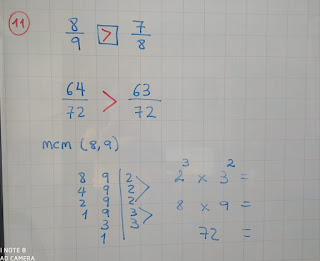 11
8/9 > 7/8
64/72 > 63/72
mcm (8,9)
8 9 | 2
4 9 | 2
2 9 | 2
1 9 | 3
3 | 3
1
2³ x 3² =
8 x 9 =
72 =
I NOTE 8
AD CAMERA